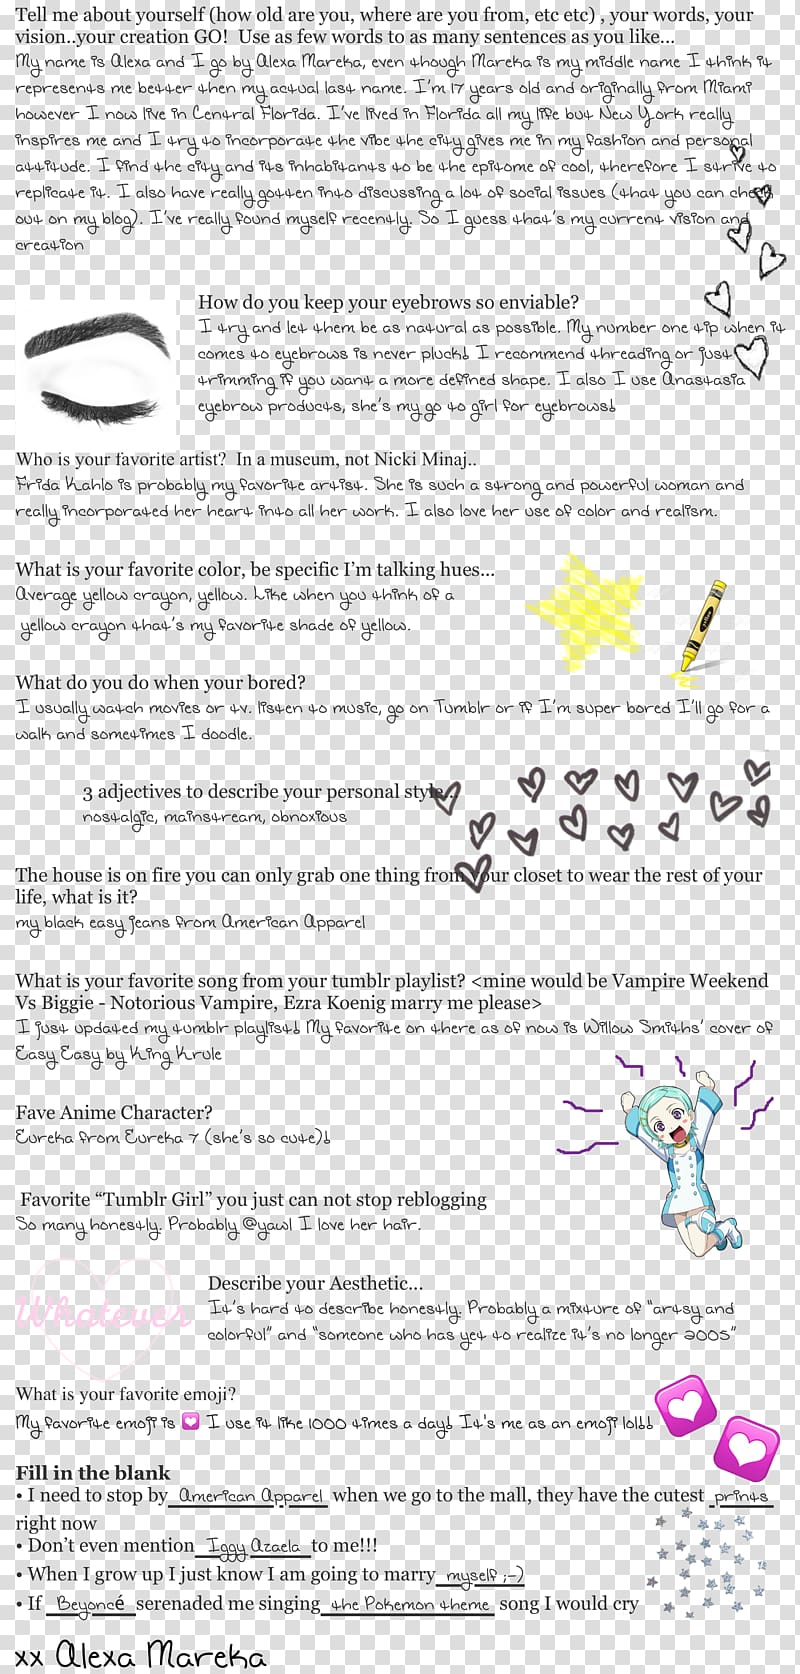 Tell me about yourself (how old are you, where are you from, etc etc) , your words, your
vision..your creation GO!  Use as few words to as many sentences as you like...
My name is Alexa and I go by Alexa Mareka, even though Mareka is my middle name I think it
represents me better then my actual last name. I'm 17 years old and originally from Miami
however I now live in Central Florida. I've lived in Florida all my life but New York really
inspires me and I try to incorporate the vibe the city gives me in my fashion and personal
attitude. I find the city and its inhabitants to be the epitome of cool, therefore I strive to
replicate it. I also have really gotten into discussing a lot of social issues (that you can check
out on my blog). I've really found myself recently. So I guess that's my current vision and
creation
How do you keep your eyebrows so enviable?
I try and let them be as natural as possible. My number one tip when it
comes to eyebrows is never pluck! I recommend threading or just
trimming if you want a more defined shape. I also I use Anastasia
eyebrow products, she's my go to girl for eyebrows!
Who is your favorite artist?  In a museum, not Nicki Minaj..
Frida Kahlo is probably my favorite artist. She is such a strong and powerful woman and
really incorporated her heart into all her work. I also love her use of color and realism.
What is your favorite color, be specific I'm talking hues...
Average yellow crayon, yellow. Like when you think of a
yellow crayon that's my favorite shade of yellow.
What do you do when your bored?
I usually watch movies or tv. listen to music, go on Tumblr or if I'm super bored I'll go for a
walk and sometimes I doodle.
3 adjectives to describe your personal style...
nostalgic, mainstream, obnoxious
The house is on fire you can only grab one thing from your closet to wear the rest of your
life, what is it?
my black easy jeans from American Apparel
What is your favorite song from your tumblr playlist? <mine would be Vampire Weekend
Vs Biggie - Notorious Vampire, Ezra Koenig marry me please>
I just updated my tumblr playlist! My favorite on there as of now is Willow Smiths' cover of
Easy Easy by King Krule
Fave Anime Character?
Eureka from Eureka 7 (she's so cute)!
Favorite “Tumblr Girl” you just can not stop reblogging
So many honestly. Probably @yawl I love her hair.
Whatever
Describe your Aesthetic...
It's hard to describe honestly. Probably a mixture of "artsy and
colorful" and "someone who has yet to realize it's no longer 2005"
What is your favorite emoji?
My favorite emoji is 💟 I use it like 1000 times a day! It's me as an emoji lol!!
Fill in the blank
• I need to stop by American Apparel when we go to the mall, they have the cutest prints
right now
• Don't even mention Iggy Azaela to me!!!
• When I grow up I just know I am going to marry myself ;-)
• If Beyoncé serenaded me singing the Pokemon theme song I would cry
xx Alexa Mareka